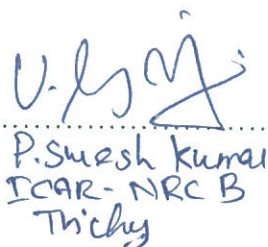 P. Suresh Kumar
ICAR - NRC B
Trichy